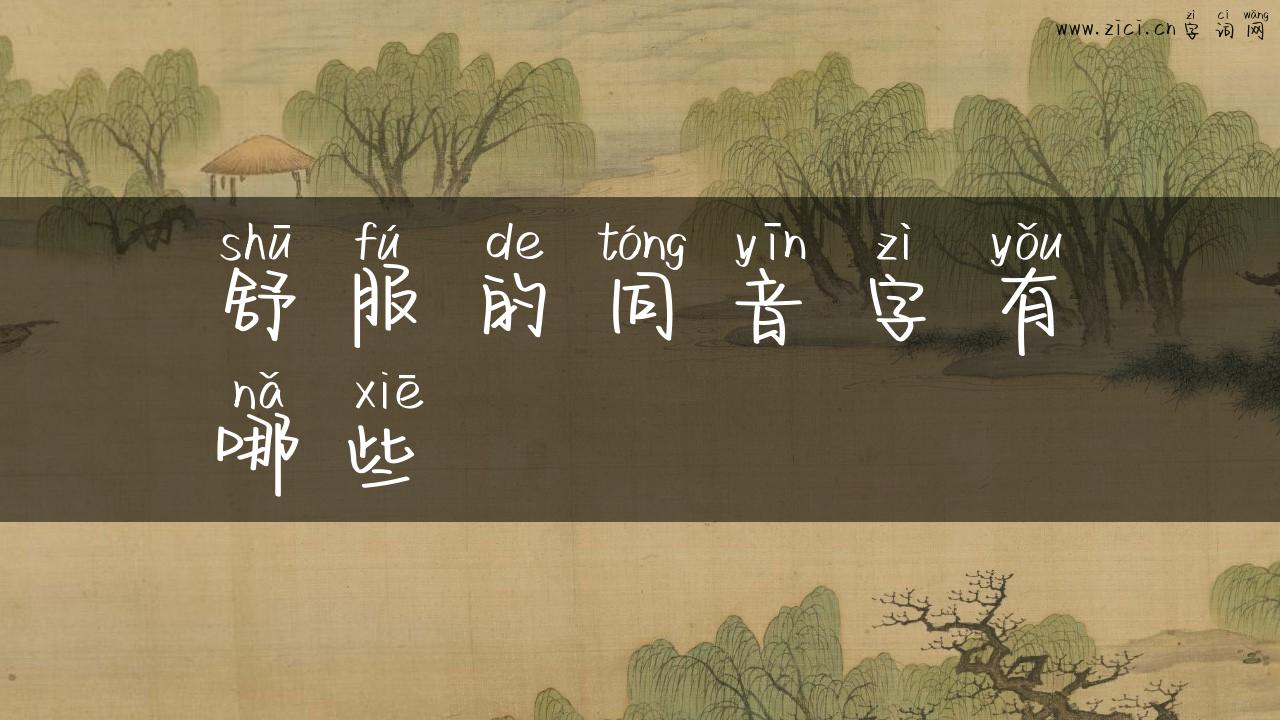 zì cí wǎng
www.zici.cn 字 词 网
shū fú de tóng yīn zì yǒu
舒 服 的 同 音 字 有
nǎ xiē
哪 些